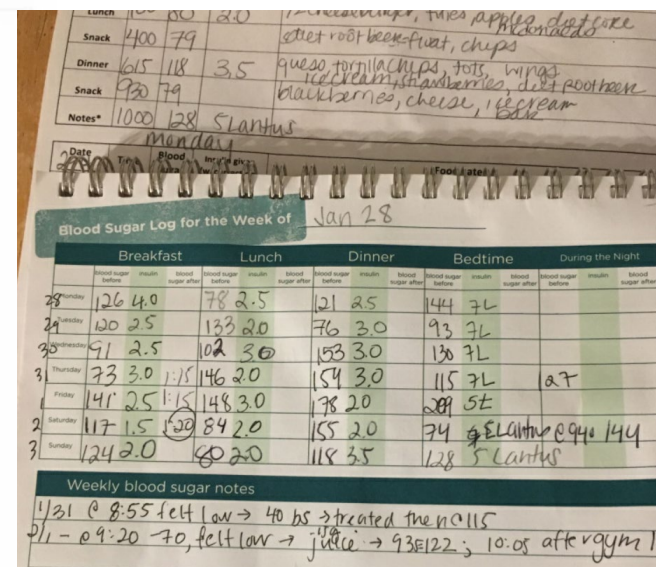 Lunch 80 2.0
Snack 400 79 diet rootbeer float, chips
Dinner 615 118 3.5 queso, tortilla chips, tots, wings
icecream, strawberries, diet rootbeer
Snack 930 79 blackberries, cheese, icecream
bar
Notes* 1000 128 5 Lantus
monday
Date Blood
Blood Sugar Log for the Week of Jan 28
Breakfast Lunch Dinner Bedtime During the Night
blood sugar before insulin blood sugar after blood sugar before insulin blood sugar after blood sugar before insulin blood sugar after blood sugar before insulin blood sugar after blood sugar before insulin blood sugar
28 Monday 126 4.0 78 2.5 121 2.5 144 7L
29 Tuesday 120 2.5 133 2.0 76 3.0 93 7L
30 Wednesday 91 2.5 102 3.0 153 3.0 130 7L
31 Thursday 73 3.0 1:15 146 2.0 154 3.0 115 7L 127
1 Friday 141 2.5 1:15 148 3.0 178 2.0 209
2 Saturday 117 1.5 84 2.0 155 2.0 74 Lantus @ 940 144
3 Sunday 124 2.0 80 2.0 118 3.5 128 5 Lantus
Weekly blood sugar notes
1/31 @ 8:55 felt low → 40 bs → treated then @ 115
2/1 - @ 9:20 - 70, felt low → juice → 122; 10:05 after gym